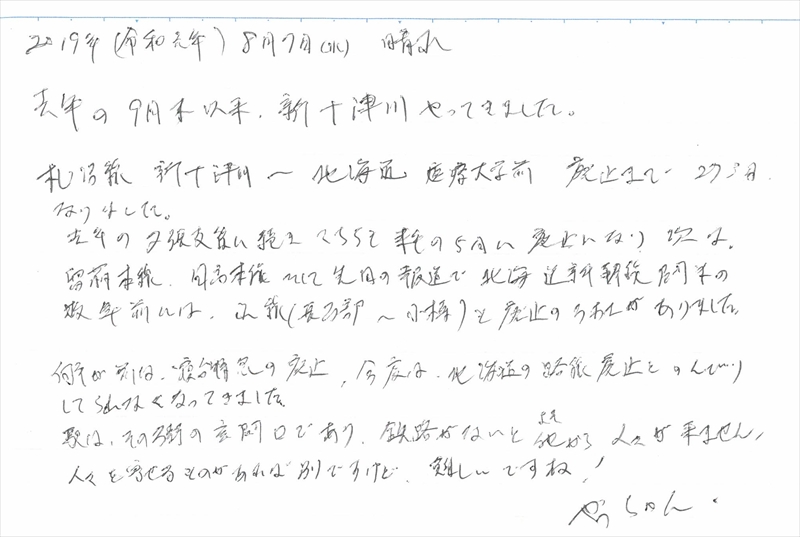 2019年(令和元年) 8月7日(水) 晴れ
去年の9月末以来、新十津川やってきました。
札沼線 新十津川〜北海道医療大学前 廃止まで 27ヶ月
なりました。
去年の夕張支線に続き こちらも 来年の5月に廃止になり 次は、
留萌本線、日高本線 そして先日の報道で北海道新幹線開業の
数年前には、函館(長万部〜小樽)も廃止のうわさがありました。
何年か前は、寝台特急の廃止、今度は、北海道の路線廃止と のんびり
してられなくなってきました。
駅は、その街の玄関口であり、鉄路がないと 他から 人々が来ません、
よそ
人々を寄せるものがあれば別ですけど、難しいですね!
ちゃん.